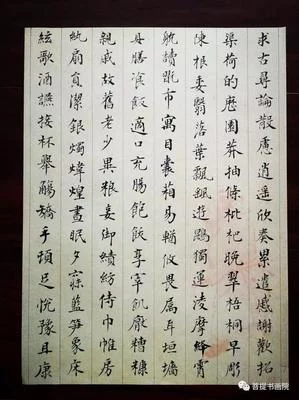 求古尋論散慮逍遥欣奏累遣慼謝歡招
渠荷的歷園莽抽條枇杷晚翠梧桐早彫
陳根委翳落葉飄颻遊鵾獨運凌摩絳霄
躭讀翫市寓目囊箱易輶攸畏属耳垣墻
具膳飡飯適口充腸飽飫享宰飢厭糟糠
親戚故舊老少異粮妾御績紡侍巾帷房
紈扇員潔銀燭煒煌晝眠夕寐藍笋象床
絃歌酒讌接杯舉觴矯手頓足悅豫且康
菩提书画院